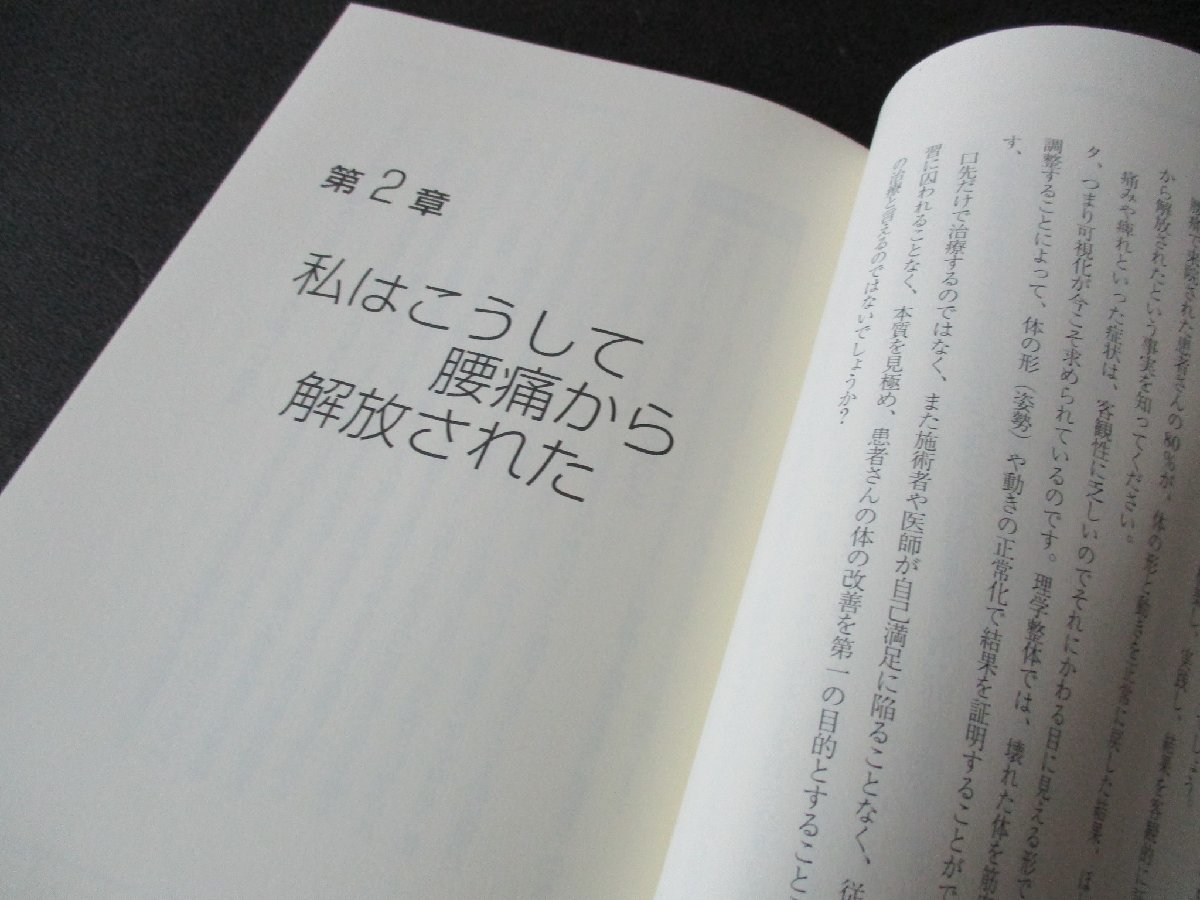 第2章
私はこうして
腰痛から
解放された
来院された患者さんの80%が、体の形と動きを正常に戻した結果、
から解放されたという事実を知ってください。
痛みや痺れといった症状は、客観性に乏しいのでそれにかわる目に見える形で
タ、つまり可視化が今こそ求められているのです。理学整体では、壊れた体を筋
調整することによって、体の形（姿勢）や動きの正常化で結果を証明することがで
す。
口先だけで治療するのではなく、また施術者や医師が自己満足に陥ることなく、従
習に囚われることなく、本質を見極め、患者さんの体の改善を第一の目的とすること
の治療と言えるのではないでしょうか？